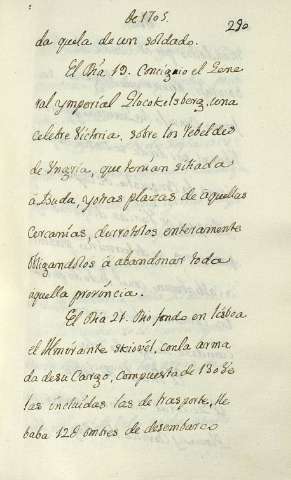 de 1705.
290
da quela de un soldado.
El Dia 19. Consiguio el Gene
ral ymperial Glocokelsberg, una
celebre Victoria, sobre los rebeldes
de Vngria, que tenian sitiada
á Buda, y otras plazas de aquellas
cercanias, derrotolos enteramente
obligandolos á abandonar toda
aquella provincia.
El Dia 21. Dio fondo en Lisboa
el Almirante skiovel, con la arma
da de su Cargo, compuesta de 130 Ve
las incluidas las de trasporte, lle
baba 12 @ ombres de desembarco